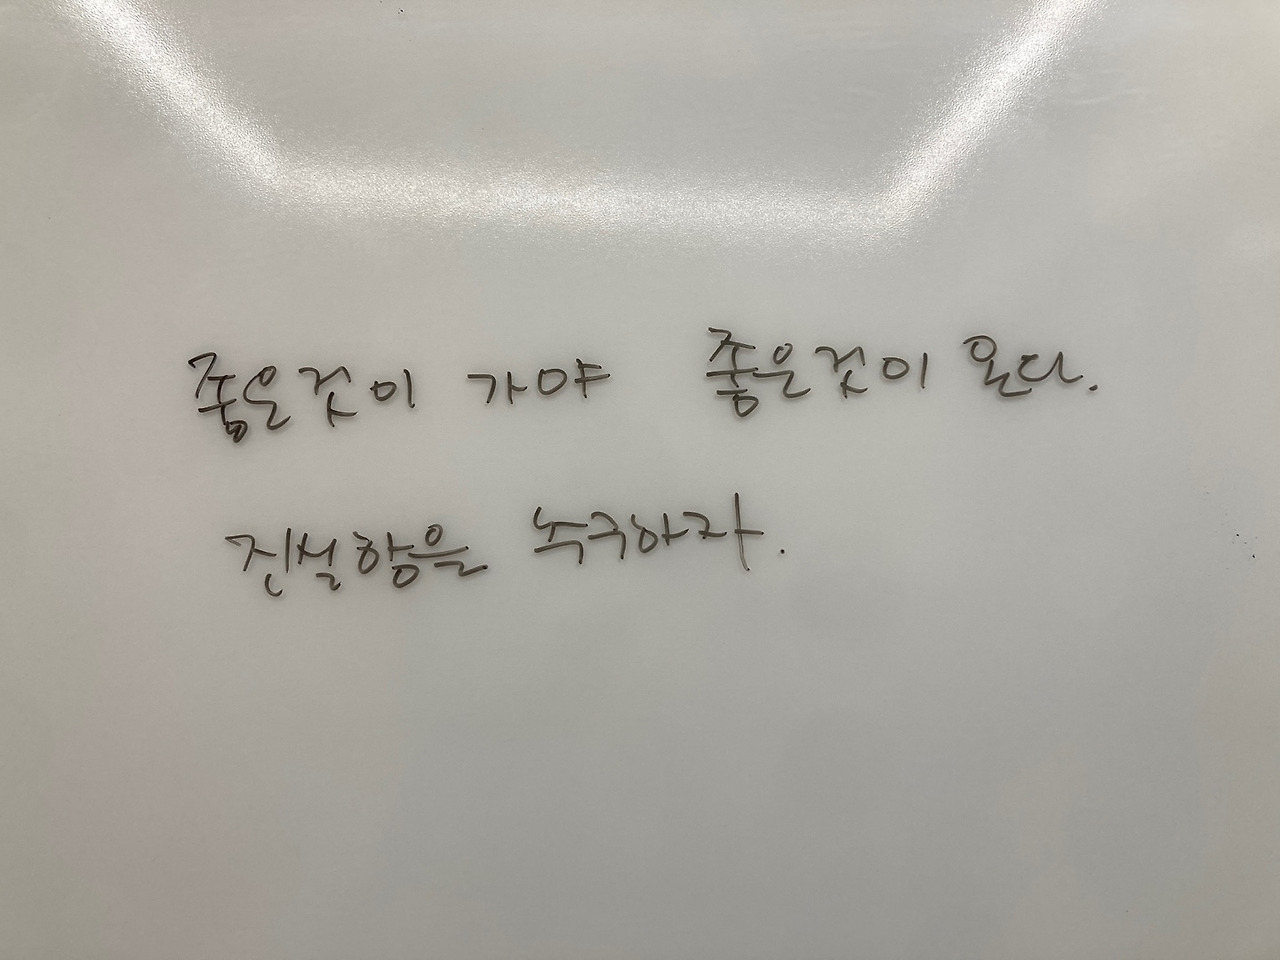 좋은것이 가야 좋은것이 온다.
진실함을 추구하자.